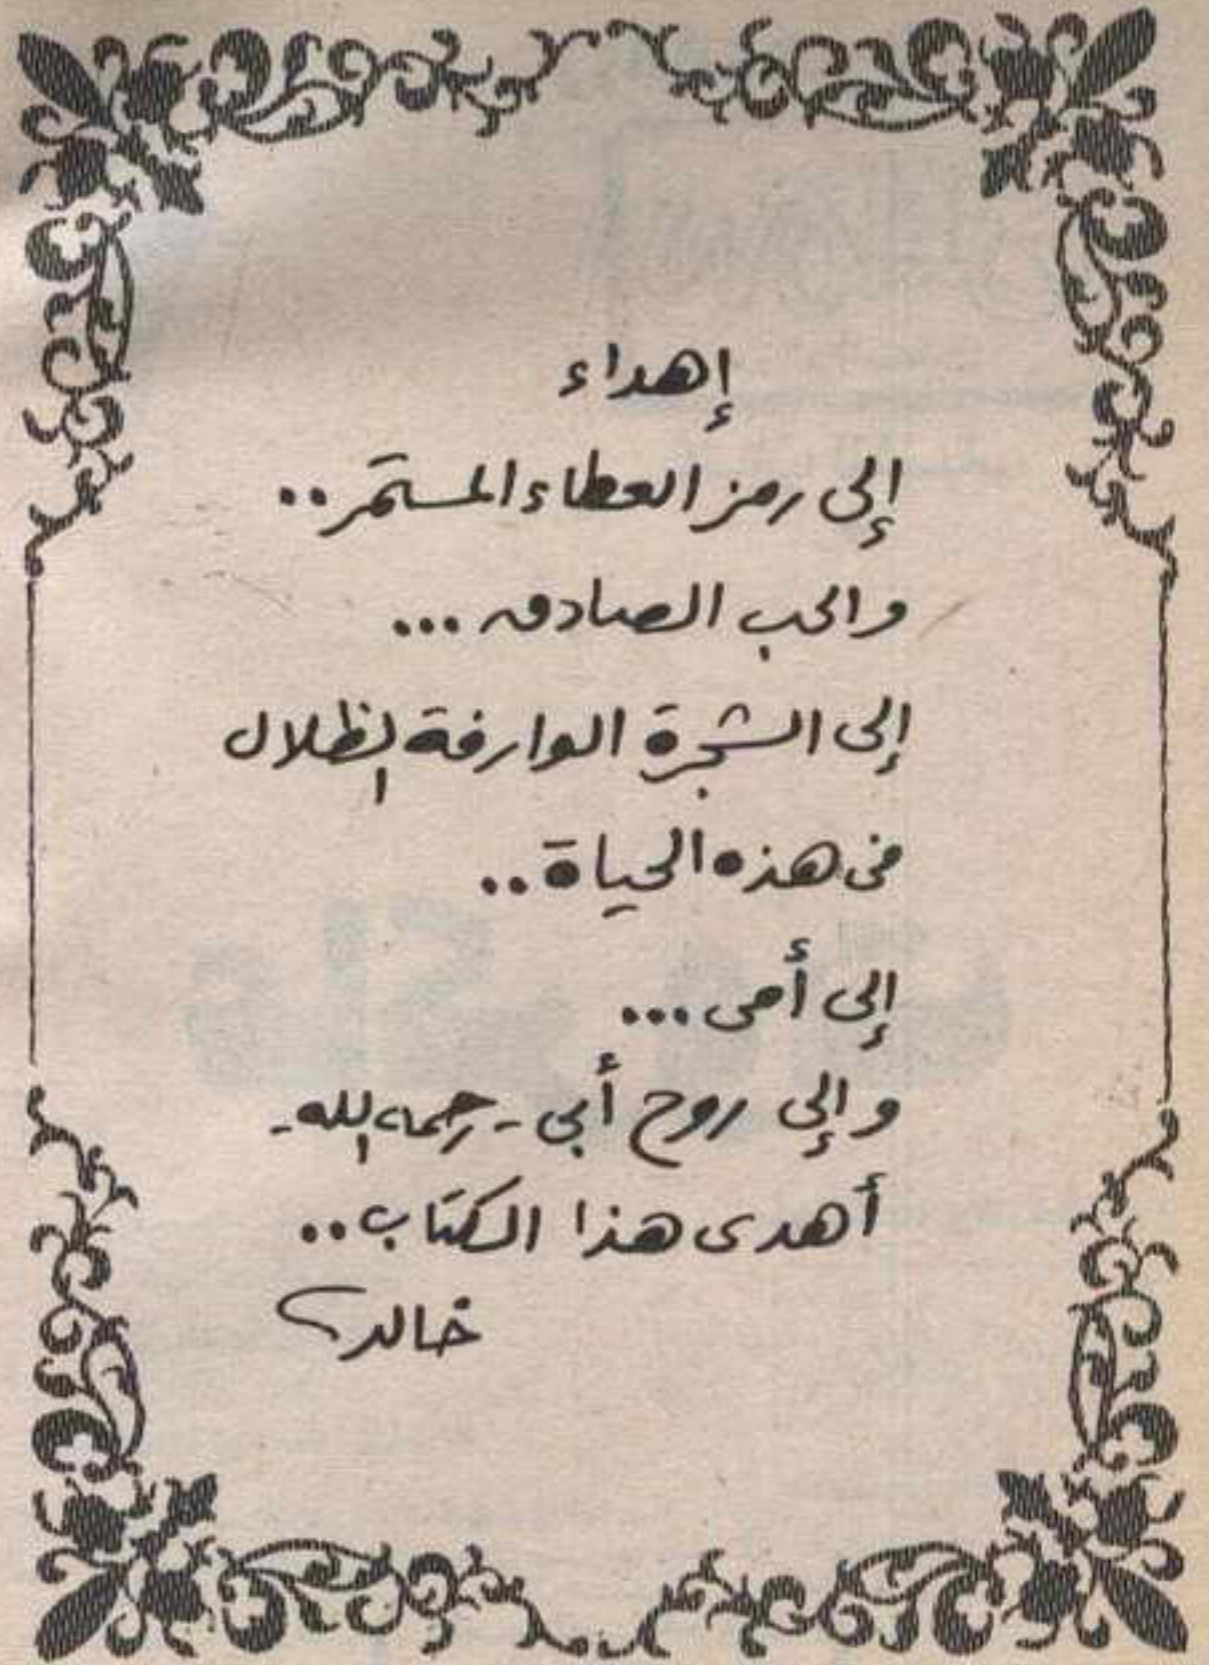 إهداء
إلى رمز العطاء المستمر..
والحب الصادق...
إلى الشجرة الوارفة الظلال
فى هذه الحياة..
إلى أمى...
وإلى روح أبى - رحمه الله -
أهدى هذا الكتاب..
خالد